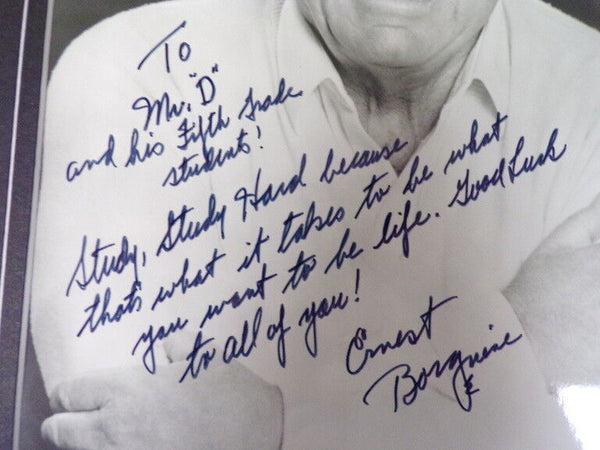 To
Mr. "D"
and his Fifth Grade
students!
Study, Study Hard because
that's what it takes to be what
you want to be life. Good Luck
to all of you!
Ernest
Borgnine